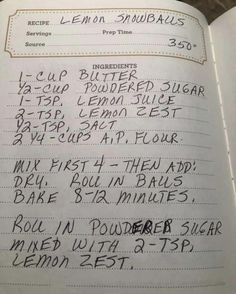 RECIPE LEMON SNOWBALLS
Servings Prep Time
Source 350°
INGREDIENTS
1-CUP BUTTER
1/2-CUP POWDERED SUGAR
1-TSP. LEMON JUICE
2-TSP. LEMON ZEST
1/2-TSP. SALT
2 1/4-CUPS A.P. FLOUR.
MIX FIRST 4 - THEN ADD:
DRY. ROLL IN BALLS
BAKE 8-12 MINUTES.
ROLL IN POWDERER SUGAR
MIXED WITH 2-TSP.
LEMON ZEST.